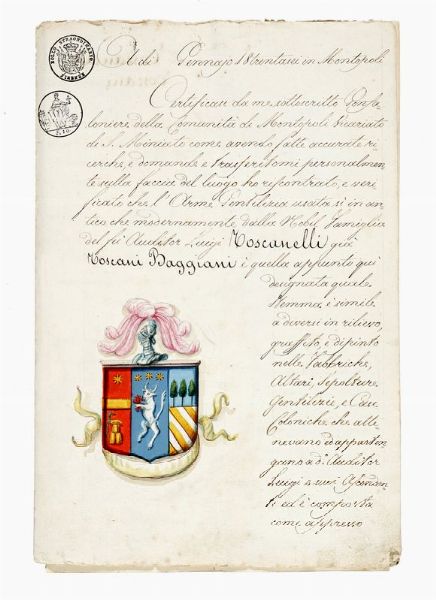 BOLLO STRAORDINARIO
FIRENZE
A di Gennajo 18trentasei in Montopoli
Certificasi da me sottoscritto Gonfa
loniere della Comunità di Montopoli Vicariato
di S. Miniato come avendo fatte accurate ri
cerche, e domande e trasferitomi personalmen
te sulla faccia del luogo ho riscontrato, e veri
ficato che l'Arme Gentilizia usata sì in an
tico che modernamente dalla Nobil Famiglia
del fù Auditor Luigi Toscanelli già
Toscani Baggiani è quella appunto qui
designata quale
Stemma è simile
a diversi in rilievo,
graffito, e dipinto
nelle Fabbriche,
Altari, Sepolture
Gentilizie, e Case
Coloniche che atte
nevano ed apparten
gono a do. Auditor
Luigi e suoi Ascenden
ti ed è composta
come appresso